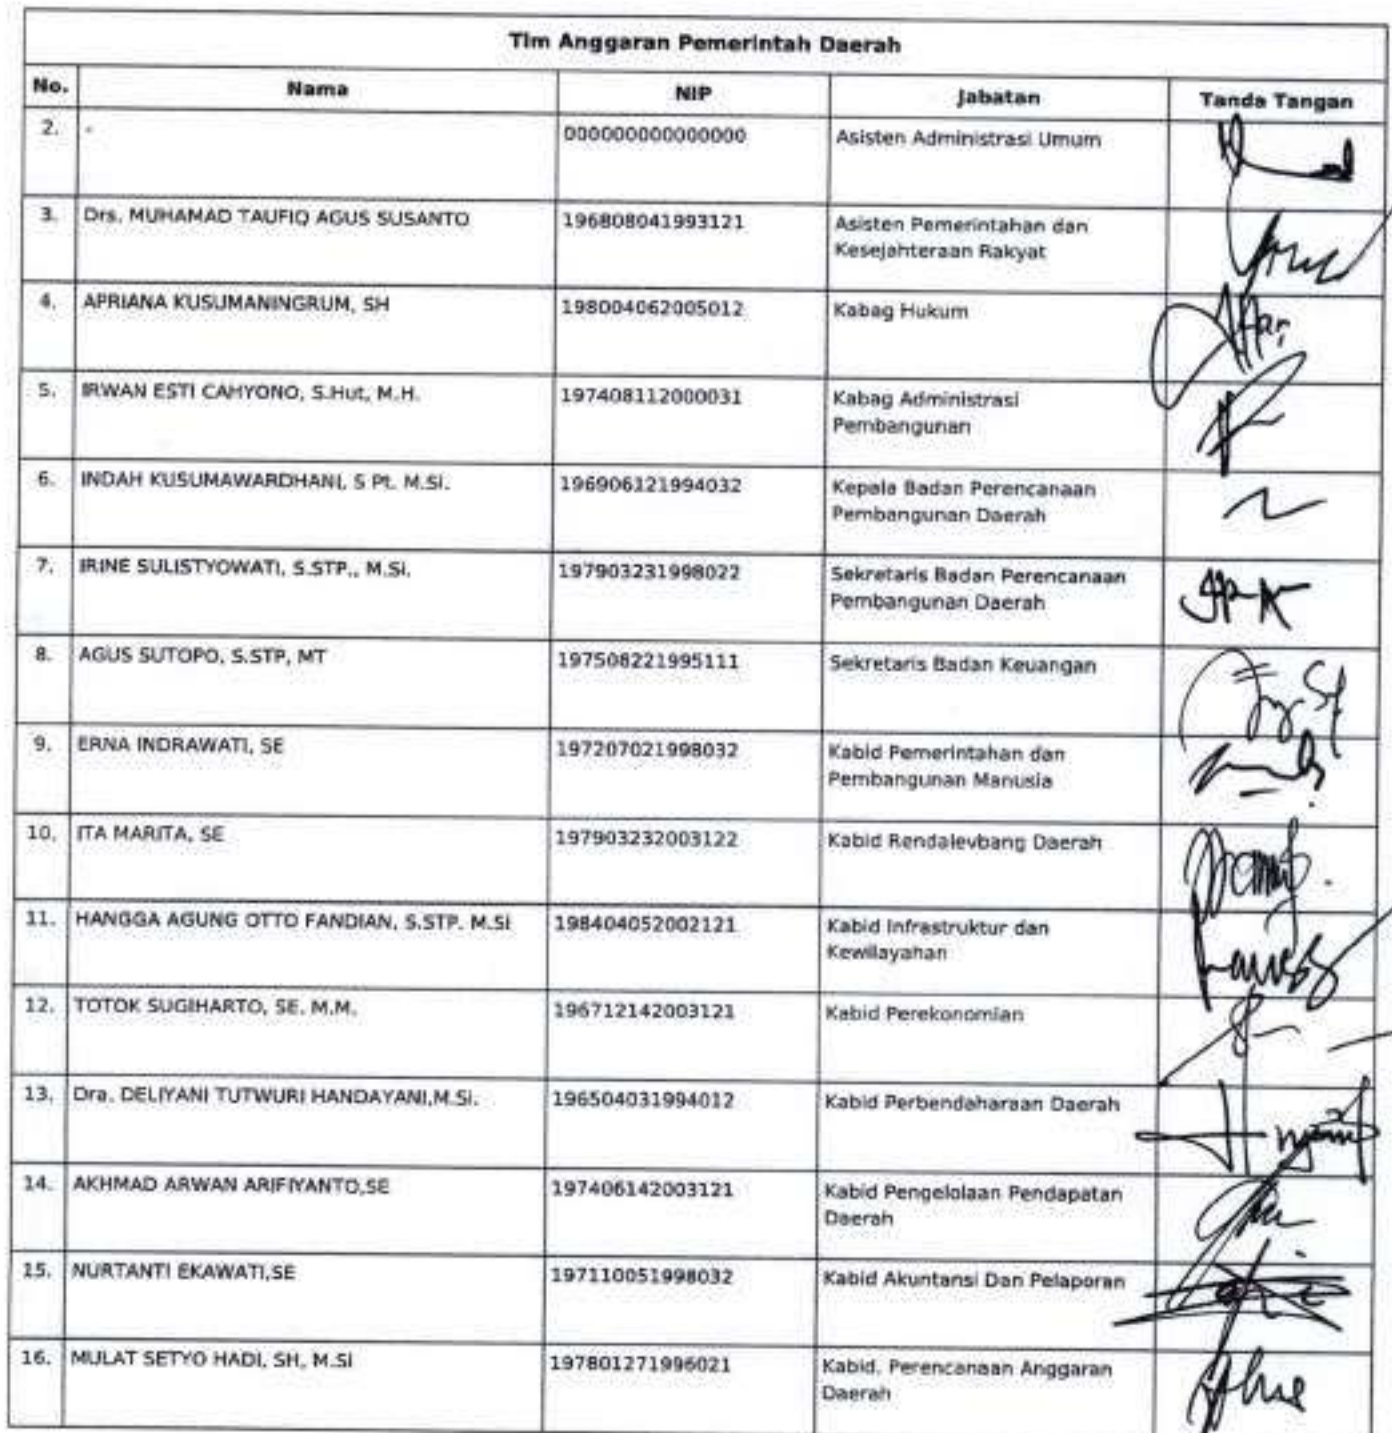 Tim Anggaran Pemerintah Daerah
No. Nama NIP Jabatan Tanda Tangan
2. - 000000000000000 Asisten Administrasi Umum
3. Drs. MUHAMAD TAUFIQ AGUS SUSANTO 196808041993121 Asisten Pemerintahan dan
Kesejahteraan Rakyat
4. APRIANA KUSUMANINGRUM, SH 198004062005012 Kabag Hukum
5. IRWAN ESTI CAHYONO, S.Hut, M.H. 197408112000031 Kabag Administrasi
Pembangunan
6. INDAH KUSUMAWARDHANI, S Pt. M.Si. 196906121994032 Kepala Badan Perencanaan
Pembangunan Daerah
7. IRINE SULISTYOWATI, S.STP,, M.Si. 197903231998022 Sekretaris Badan Perencanaan
Pembangunan Daerah
8. AGUS SUTOPO, S.STP, MT 197508221995111 Sekretaris Badan Keuangan
9. ERNA INDRAWATI, SE 197207021998032 Kabid Pemerintahan dan
Pembangunan Manusia
10. ITA MARITA, SE 197903232003122 Kabid Rendalevbang Daerah
11. HANGGA AGUNG OTTO FANDIAN, S.STP. M.Si 198404052002121 Kabid Infrastruktur dan
Kewilayahan
12. TOTOK SUGIHARTO, SE. M.M. 196712142003121 Kabid Perekonomian
13. Dra. DELIYANI TUTWURI HANDAYANI,M.Si. 196504031994012 Kabid Perbendaharaan Daerah
14. AKHMAD ARWAN ARIFIYANTO,SE 197406142003121 Kabid Pengelolaan Pendapatan
Daerah
15. NURTANTI EKAWATI,SE 197110051998032 Kabid Akuntansi Dan Pelaporan
16. MULAT SETYO HADI, SH, M.Si 197801271996021 Kabid. Perencanaan Anggaran
Daerah